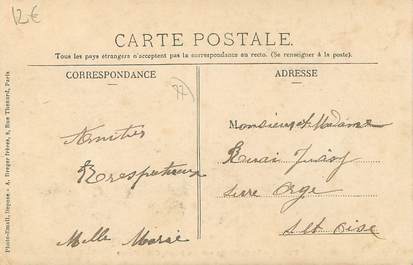 12€
CARTE POSTALE.
Tous les pays étrangers n'acceptent pas la correspondance au recto. (Se renseigner à la poste).
CORRESPONDANCE
ADRESSE
77
Amitiés
Respectueux
Melle Marie
Monsieur et Madame
Quai
sur Orge
S et Oise
Photo-Email, Dépose - A. Breger Frères, 9, Rue Thénard, Paris